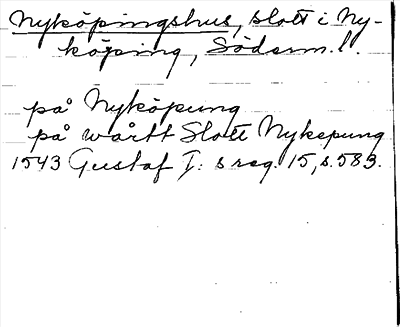 Nyköpingshus, slott i Ny-
köping, Söderm. l.
på Nyköpung
på wårtt Slott Nykepung
1543 Gustaf I:s reg. 15, s. 583.